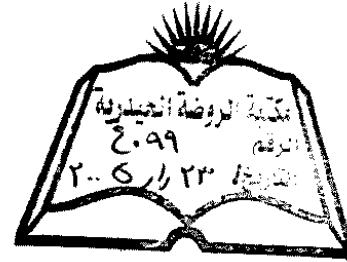 مكتبة الروضة الحيدرية
الرقم ٤٠٩٩
التاريخ ٢٣ / ٢٠٠